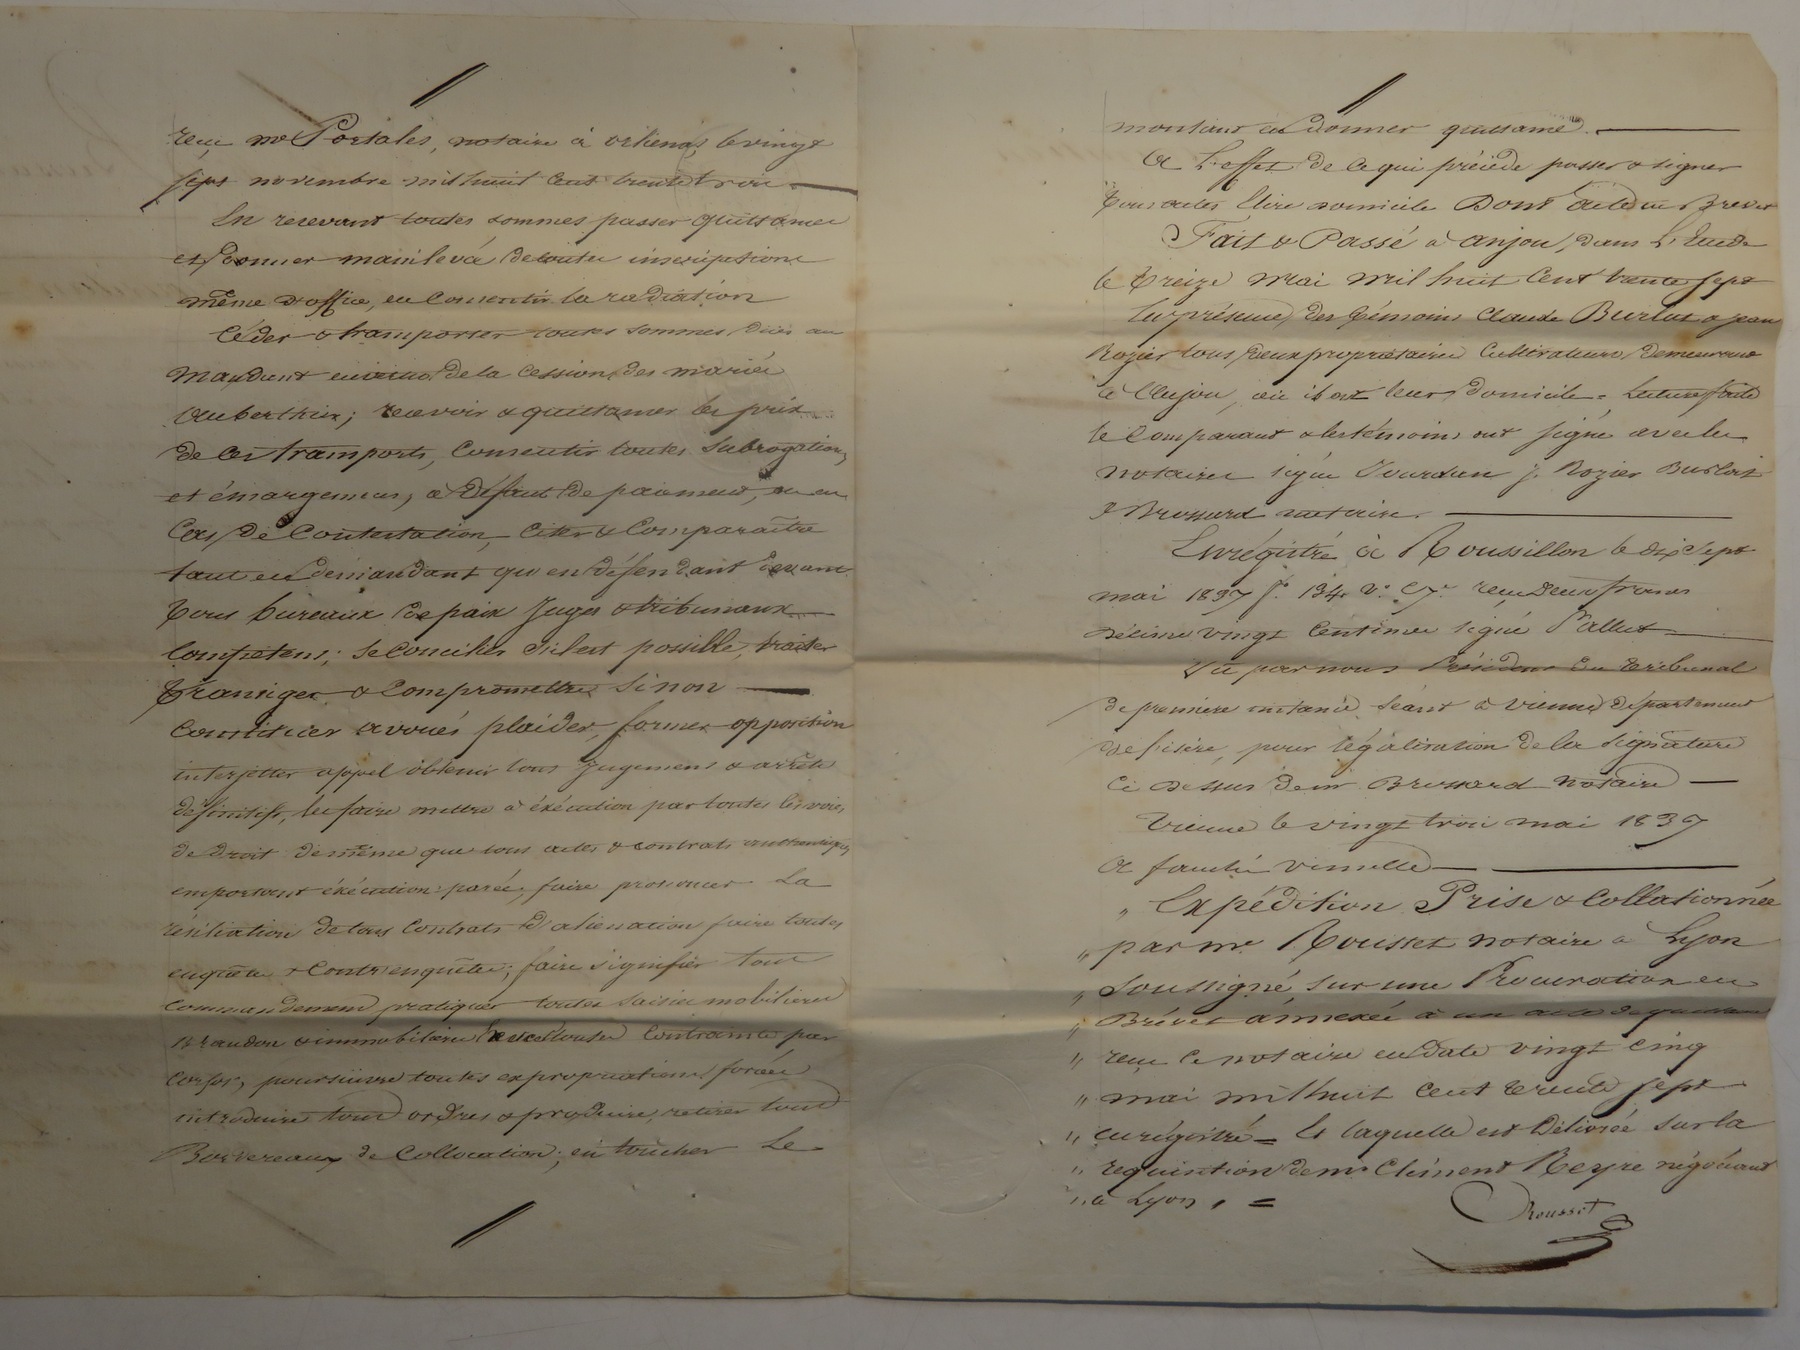 reçu me Portales, notaire à orliénas, le vingt
sept novembre mil huit cent trente trois
En recevant toutes sommes passer quittance
et Donner mainlevée de toutes inscriptions
même d'office, en Consentir la radiation
Céder & transporter toutes sommes dues au
Mandant en vertu de la cession des mariés
; recevoir & quittancer les prix
de ces transports, Consentir toutes Subrogations
et émargemens, à Défaut de paiement, ou en
Cas de Contestation, citer & Comparaître
tant en demandant qu'en Défendant devant
tous bureaux de paix Juges & tribunaux
Compétens ; Se Concilier s'il est possible, traiter
transiger & Compromettre Sinon
Constituer avoués plaider, former opposition
interjetter appel obtenir tous Jugemens & arrêts
définitifs, les faire mettre à éxécution par toutes les voies
de droit de même que tous actes & contrats authentiques
emportant éxécution parée, faire prononcer La
résiliation de tous Contrats d'alienation faire toutes
enquête & Contr'enquête ; faire signifier tout
commandement pratiquer toutes Saisies mobilières
Brandon & immobilière toutes Contrainte par
Corps, poursuivre toutes expropriations forcées
introduire tous ordres & produire, retirer tout
Borderaux de Collocation ; en toucher Le
montant en donner quittance
A L'effet de ce qui précède passer & signer
tous actes Elire domicile Dont acte en Brevet
Fait & Passé à anjou, dans L'Etude
le treize Mai Mil huit Cent trente sept
En présence des témoins Claude Burlat & jean
Rozier tous deux propriétaires Cultivateurs demeurant
à Anjou, où ils ont leurs domicile = Lecture faite
le Comparant & les témoins ont signé avec les
notaires signé Jourdan J. Rozier Burlat
& Brossard notaire.
Enrégistré à Roussillon le dix sept
mai 1837 f° 134 v° C. 7e reçu deux francs
décime vingt Centimes signé Pallut
Vu par nous Président du tribunal
de première instance séant à Vienne département
de l'isère, pour légalisation de la signature
Ci dessus de mr Brossard notaire
Vienne le vingt trois mai 1837
" Expédition Prise & Collationnée
" par me Rousset notaire à Lyon
" Soussigné, sur une Procuration en
" Brévet annexée à un acte de quittance
" reçu Ce notaire en date vingt cinq
" mai mil huit cent trente sept
" enrégistré = Et laquelle est Délivrée sur la
" requisition de mr Clément Reyre négociant
" à Lyon, =
Rousset